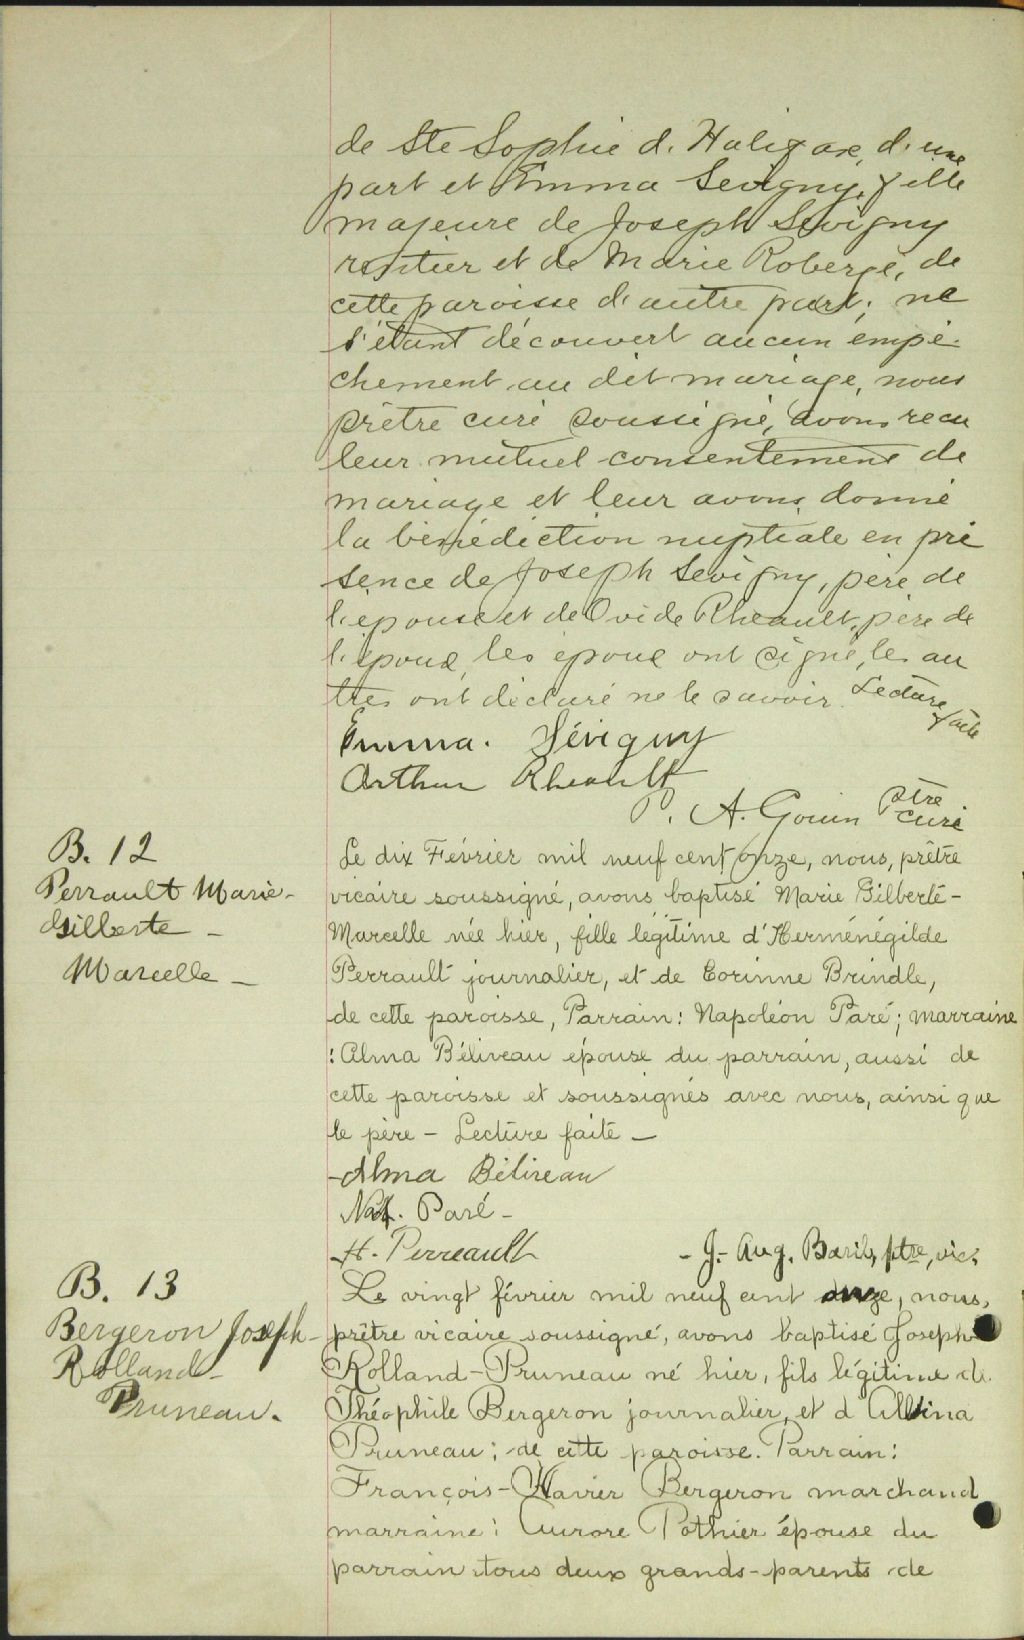 de Ste Sophie d. Halifax, d'une
part et Emma Sevigny, fille
majeure de Joseph Sevigny
rentier et de Marie Roberge, de
cette paroisse d'autre part; ne
s'étant découvert aucun empê-
chement au dit mariage, nous
prêtre curé soussigné, avons recu
leur mutuel consentement de
mariage et leur avons donné
la bénédiction nuptiale en pré
sence de Joseph Sevigny, père de
l'epouse et de Ovide Rheault, père de
l'époux, les époux ont signé, les au
tres ont déclaré ne le savoir. Lecture faite
Emma. Sévigny
Arthur Rheault
P. A. Gouin Ptre curé
B. 12
Perrault Marie-
Gilberte -
Marcelle -
Le dix Février mil neuf cent onze, nous, prêtre
vicaire soussigné, avons baptisé Marie Gilberte-
Marcelle née hier, fille légitime d'Herménégilde
Perrault journalier, et de Corinne Brindle,
de cette paroisse, Parrain: Napoléon Paré; marraine
: Alma Béliveau épouse du parrain, aussi de
cette paroisse et soussignés avec nous, ainsi que
le père - Lecture faite -
Alma Béliveau
Nap. Paré -
H. Perreault - J.- Aug. Baril, ptre, vic.
B. 13
Bergeron Joseph-
Rolland-
Pruneau.
Le vingt février mil neuf cent onze, nous,
prêtre vicaire soussigné, avons baptisé Joseph
Rolland-Pruneau né hier, fils légitime de
Théophile Bergeron journalier, et d Albina
Pruneau; de cette paroisse. Parrain:
François-Xavier Bergeron marchand
marraine: Aurore Pothier épouse du
parrain tous deux grands-parents de